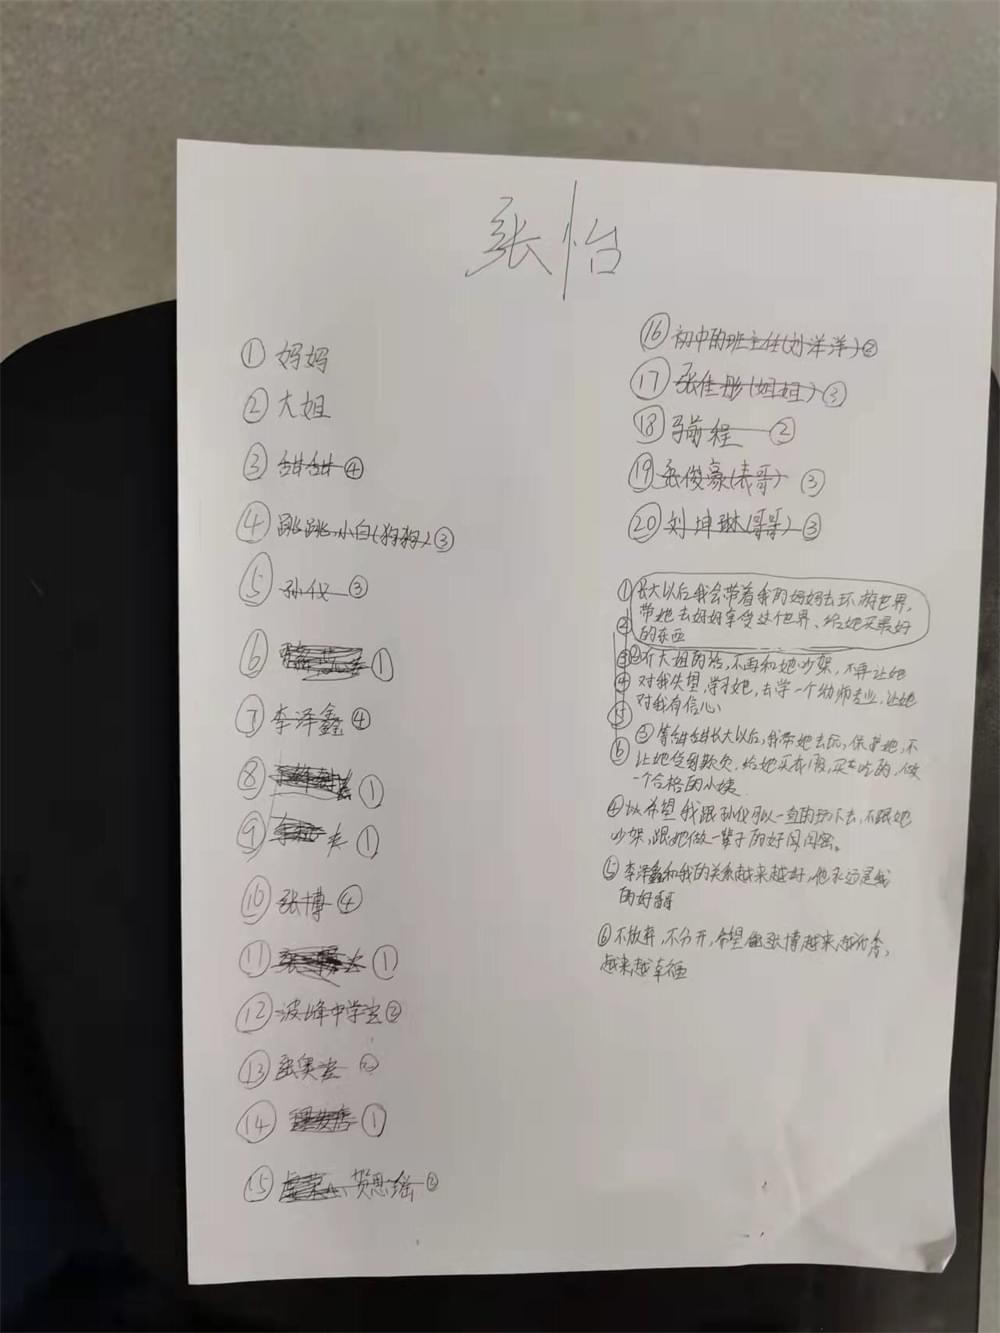 张怡
①妈妈
②大姐
③甜甜④
④跳跳、小白(狗狗)③
⑤孙仪③
⑥①
⑦李泽鑫④
⑧①
⑨①
⑩张博④
⑪①
⑫波峰中学
⑬张奥
⑭①
⑮贺思瑶②
⑯初中的班主任(刘洋洋)②
⑰张佳彤(姐姐)③
⑱前程②
⑲张俊豪(表哥)③
⑳刘坤琳(哥哥)③
①长大以后我会带着我的妈妈去环游世界,
②带她去好好享受这个世界、给她买最好
的东西
③②听大姐的话,不再和她吵架,不再让她
④对我失望,学习她,去学一个幼师专业,让她
⑤对我有信心
③等甜甜长大以后,我带她去玩,保护她,不
⑥让她受到欺负,给她买衣服,买好吃的,做
一个合格的小姨
④希望我跟孙仪可以一直的好下去,不跟她
吵架,跟她做一辈子的好闺闺密。
⑤李泽鑫和我的关系越来越好,他永远是我
的好哥哥
⑥不放弃,不分开,希望张博越来越优秀,
越来越幸福